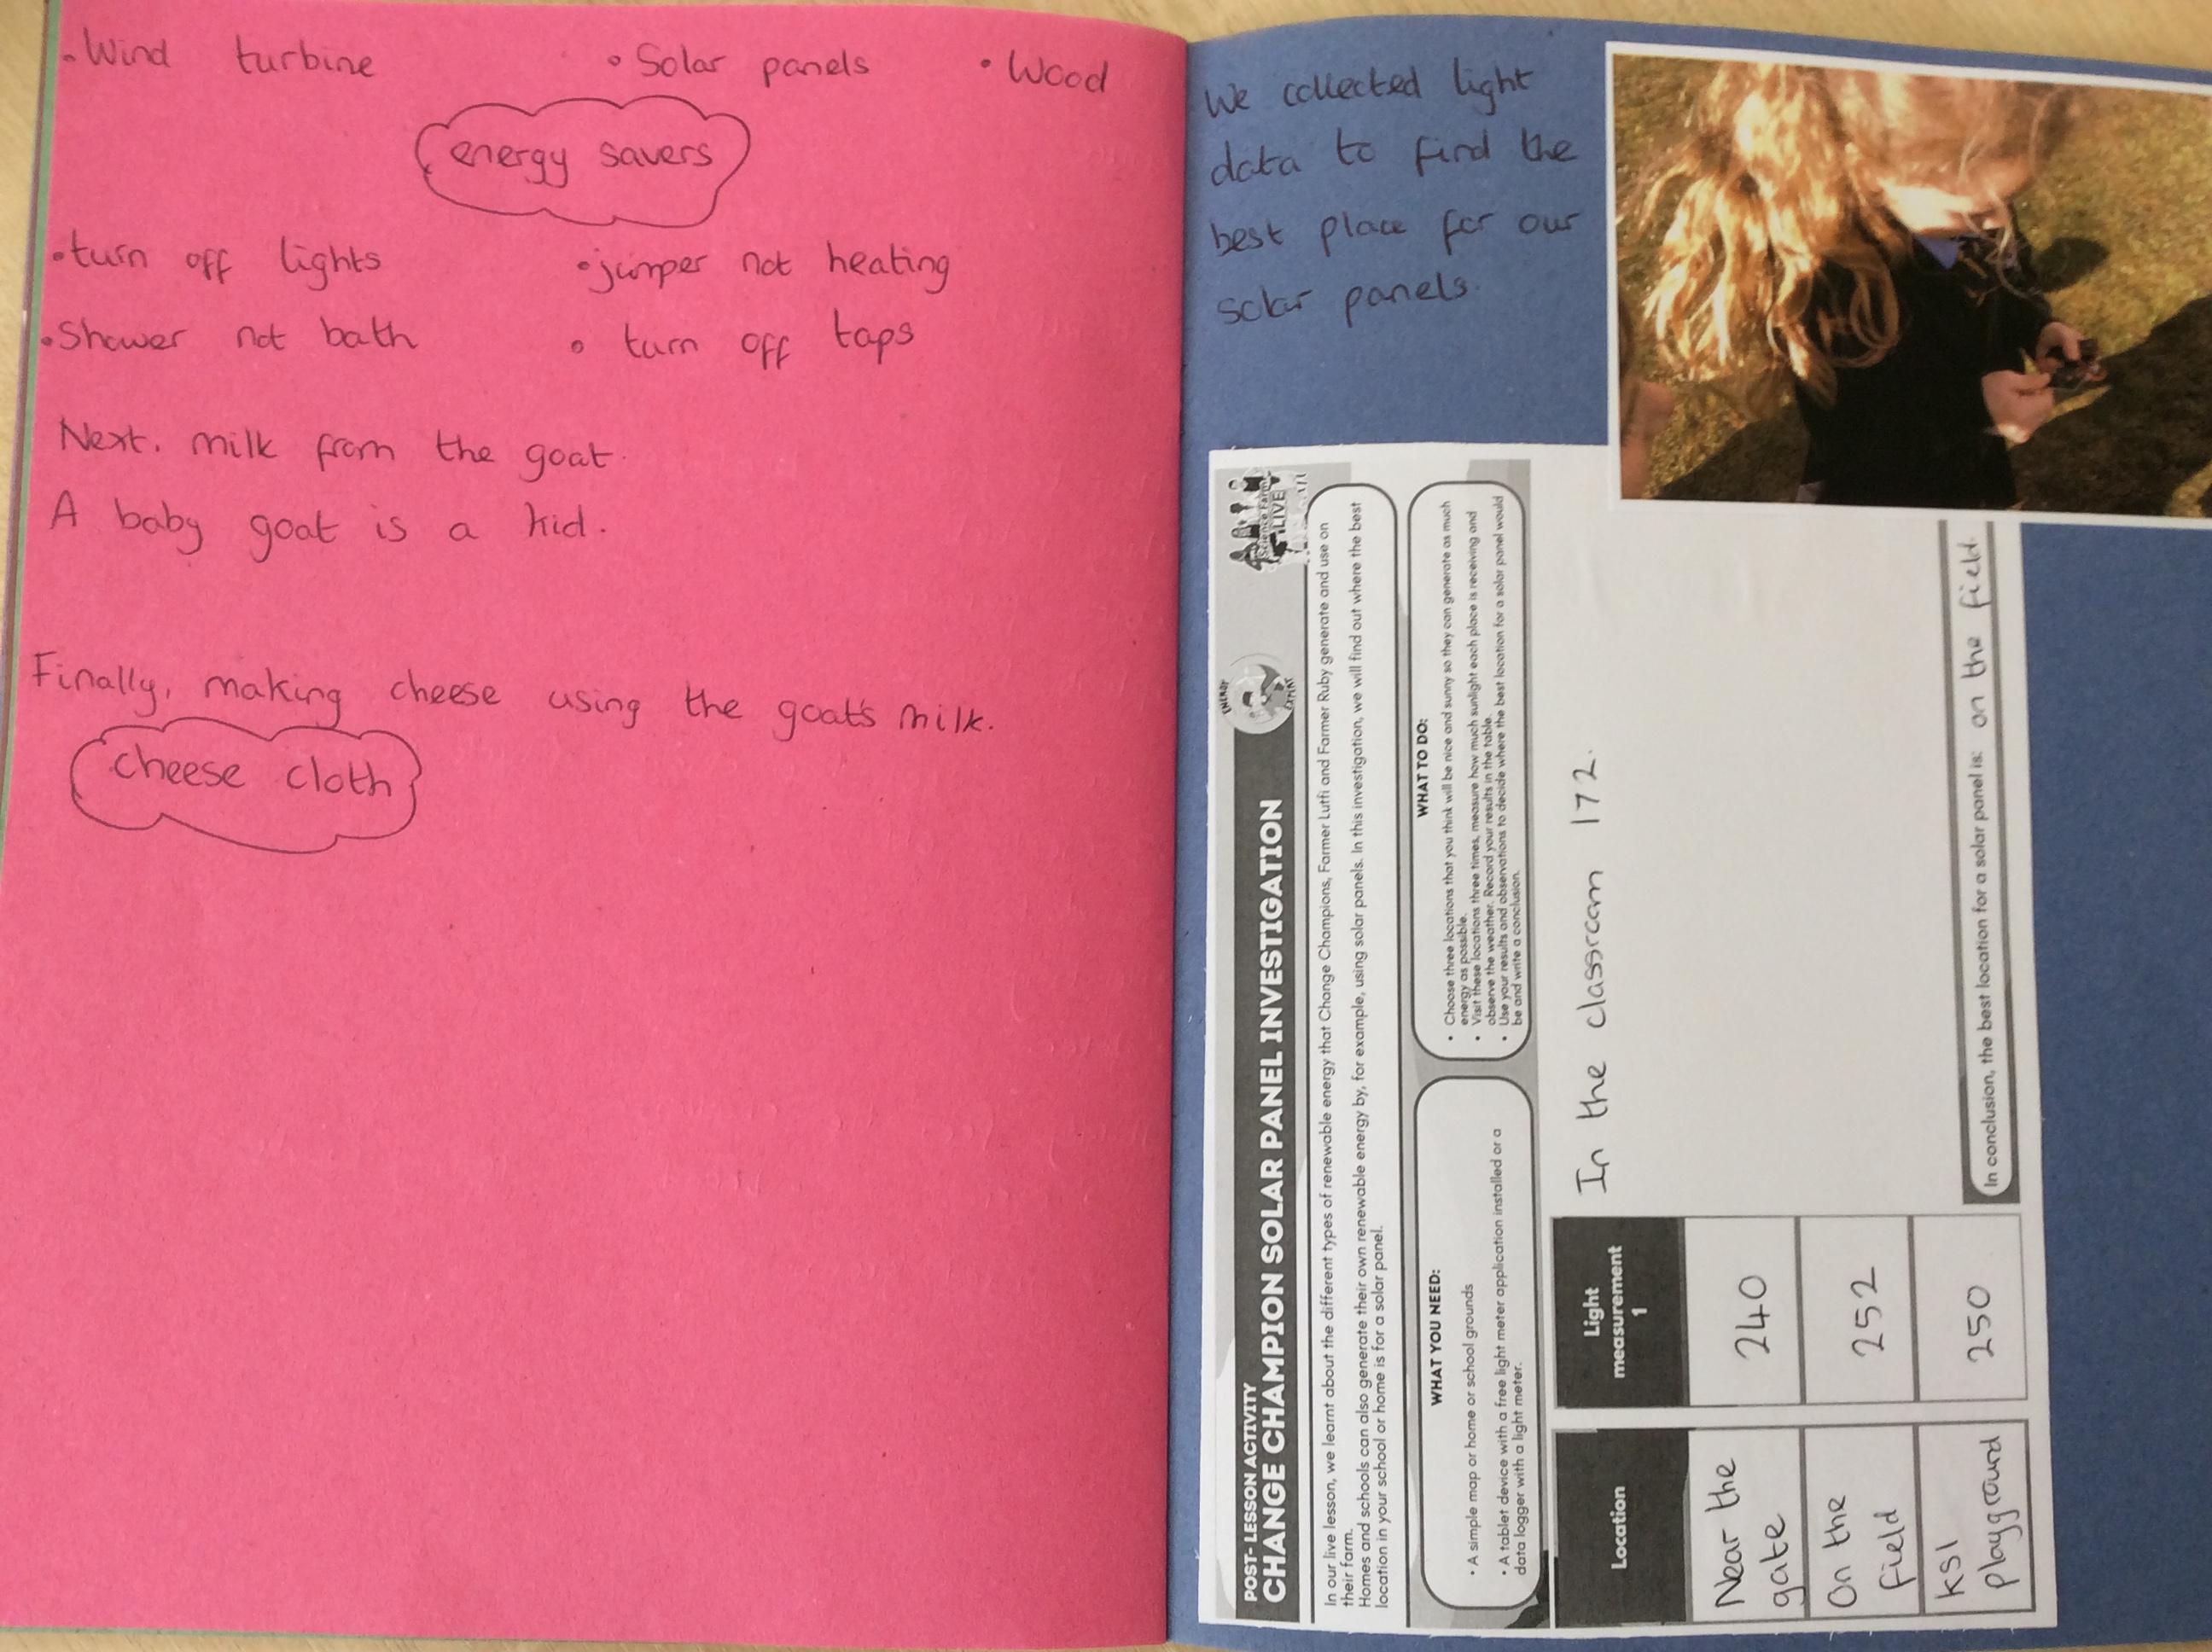 • Wind turbine • Solar panels • Wood
energy savers
• turn off lights • jumper not heating
• Shower not bath • turn off taps
Next, milk from the goat.
A baby goat is a kid.
Finally, making cheese using the goat's milk.
cheese cloth
We collected light
data to find the
best place for our
solar panels.
POST- LESSON ACTIVITY
CHANGE CHAMPION SOLAR PANEL INVESTIGATION
ENERGY
EXPERT
Science Farm
LIVE
In our live lesson, we learnt about the different types of renewable energy that Change Champions, Farmer Lutfi and Farmer Ruby generate and use on
their farm.
Homes and schools can also generate their own renewable energy by, for example, using solar panels. In this investigation, we will find out where the best
location in your school or home is for a solar panel.
WHAT YOU NEED:
• A simple map or home or school grounds
• A tablet device with a free light meter application installed or a
data logger with a light meter.
WHAT TO DO:
• Choose three locations that you think will be nice and sunny so they can generate as much
energy as possible.
• Visit these locations three times, measure how much sunlight each place is receiving and
observe the weather. Record your results in the table.
• Use your results and observations to decide where the best location for a solar panel would
be and write a conclusion.
Location
Light
measurement
1
In the classroom 172.
Near the
gate
240
On the
field
252
KS1
playground
250
In conclusion, the best location for a solar panel is: on the field.